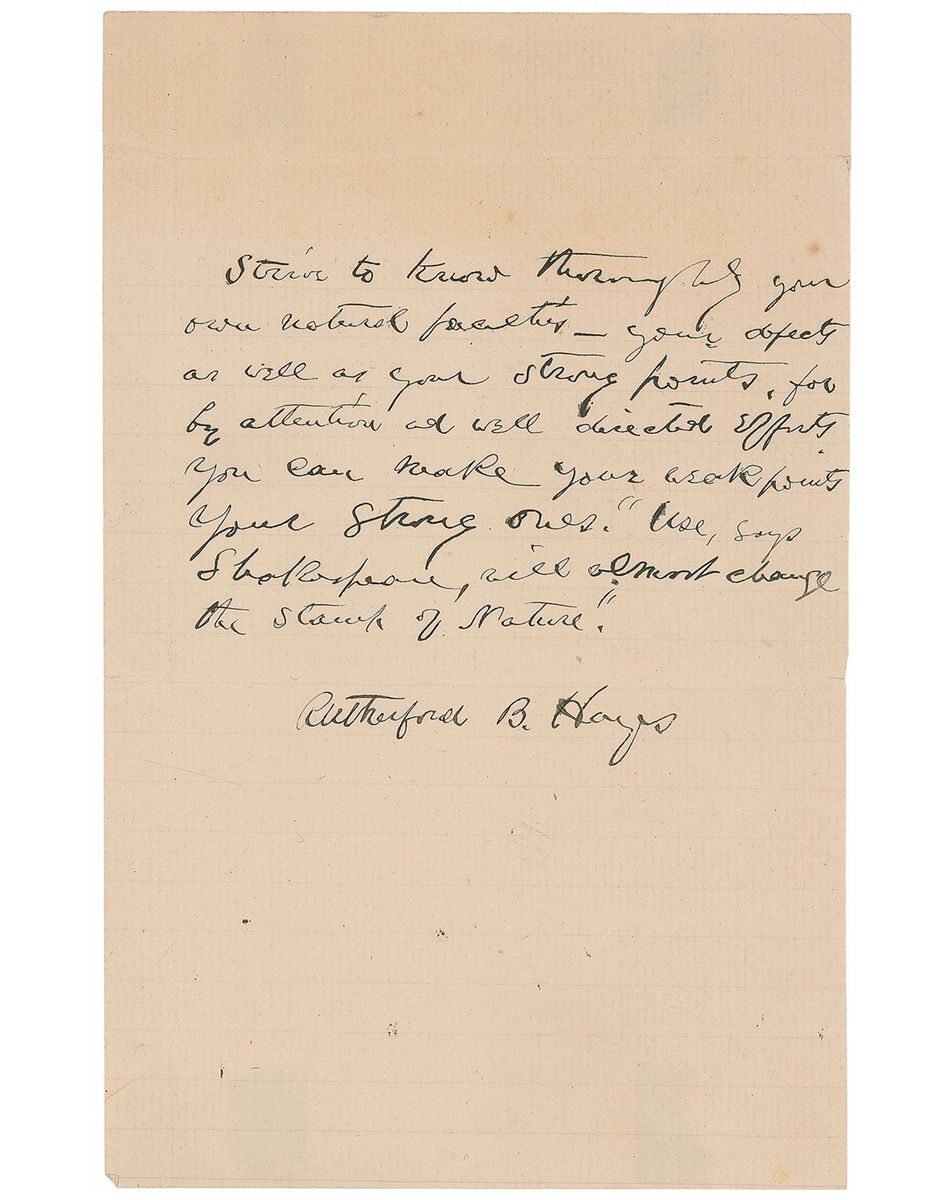 Strive to know thoroughly your
own natural faculties — your defects
as well as your strong points, for
by attention ad well directed efforts
you can make your weak points
your strong ones. "Use, says
Shakespeare, will almost change
the stamp of Nature."
Rutherford B. Hayes